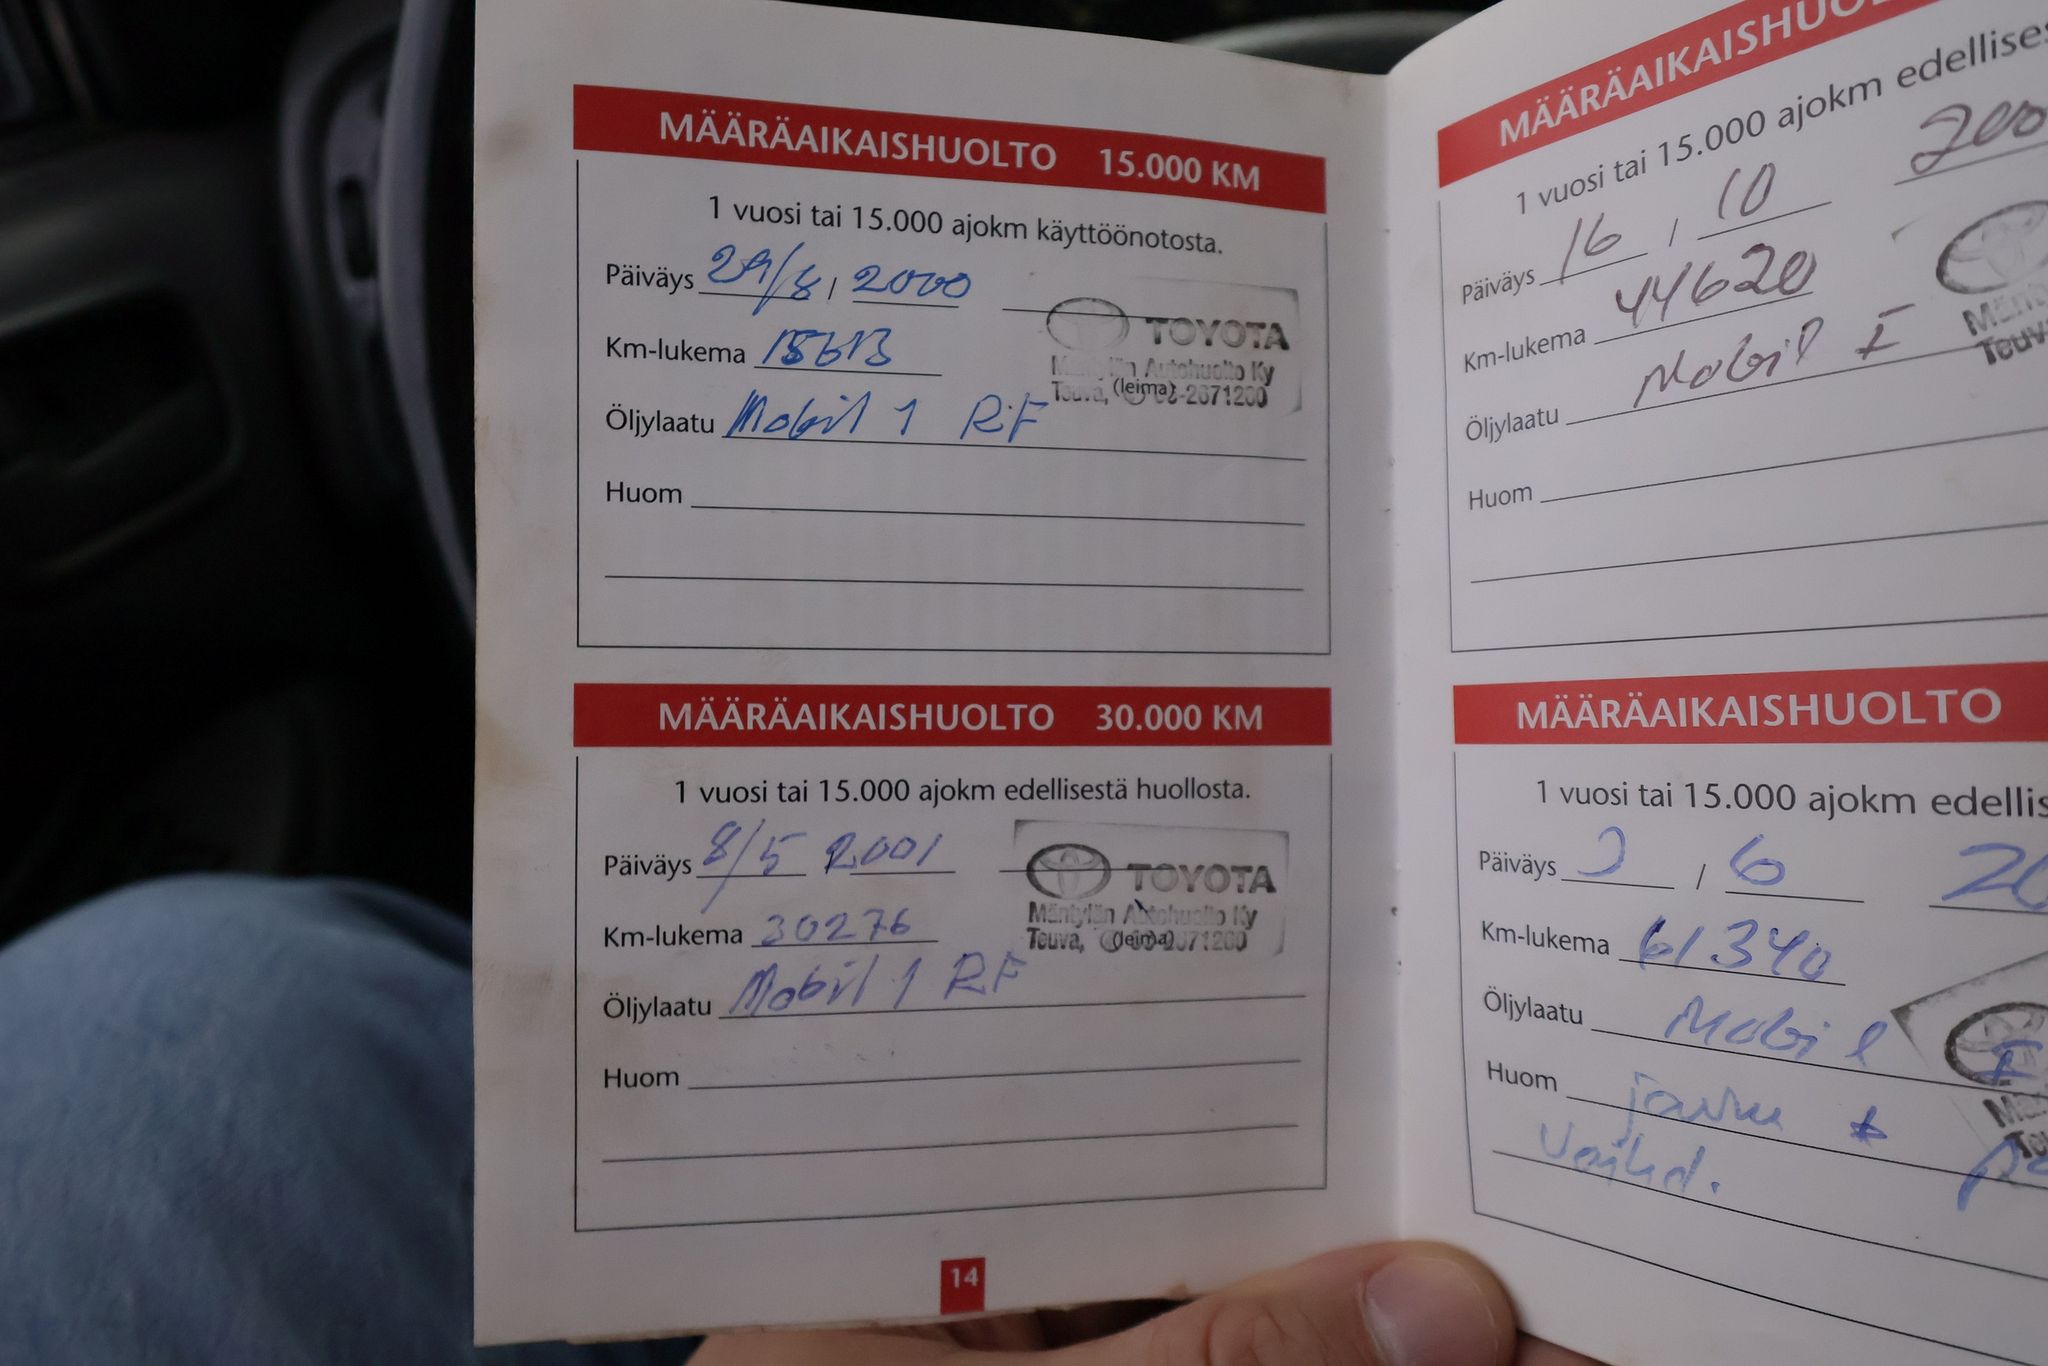 MÄÄRÄAIKAISHUOLTO 15.000 KM
1 vuosi tai 15.000 ajokm käyttöönotosta.
Päiväys 29/8 / 2000
Km-lukema
Öljylaatu Mobil 1 RF
Huom
TOYOTA
Mäntylän Autohuolto Ky
Teuva, (leima) -2671200
MÄÄRÄAIKAISHUOLTO 30.000 KM
1 vuosi tai 15.000 ajokm edellisestä huollosta.
Päiväys 8/5 2001
Km-lukema 30276
Öljylaatu Mobil 1 RF
Huom
TOYOTA
Mäntylän Autohuolto Ky
Teuva, (leima) 2671200
14
MÄÄRÄAIKAISHUO
1 vuosi tai 15.000 ajokm edellises
Päiväys 16 / 10 200
Km-lukema 44620
Öljylaatu Mobil 1
Huom
Mänt
Teuva
MÄÄRÄAIKAISHUOLTO
1 vuosi tai 15.000 ajokm edellis
Päiväys / 6 20
Km-lukema 61340
Öljylaatu Mobil 1
Huom jarru